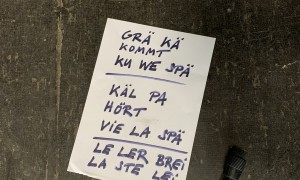 GRÄ KÄ
KOMMT
KU WE SPÄ
KÄL PA
HÖRT
VIE LA SPÄ
LE LER BREI
LA STE LEI